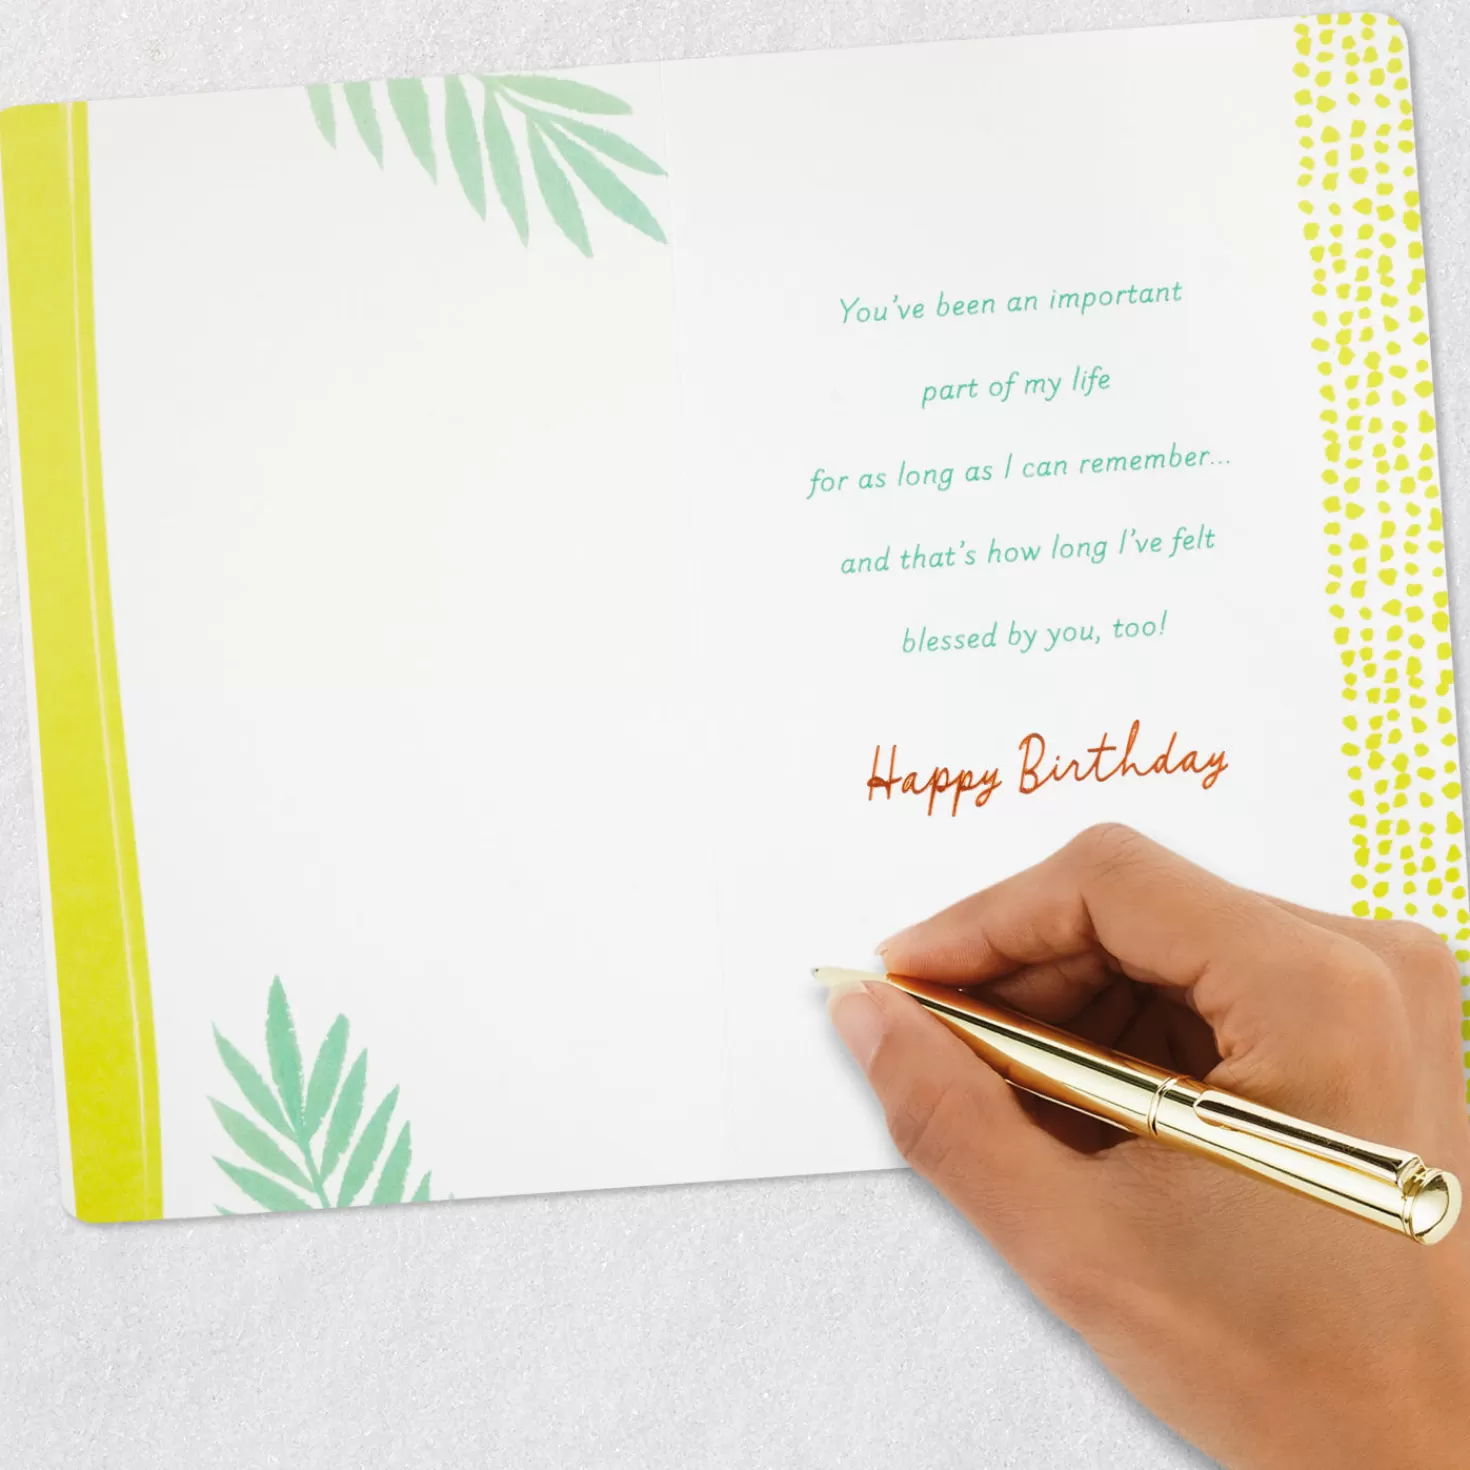 You've been an important
part of my life
for as long as I can remember...
and that's how long I've felt
blessed by you, too!
Happy Birthday